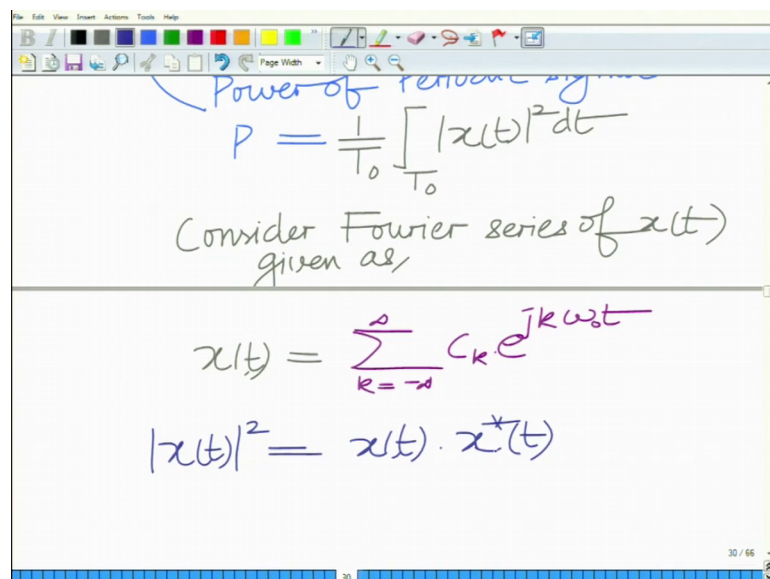 File Edit View Insert Actions Tools Help
B I
Page Width
Power of Periodic Signal
P = 1/T₀ ∫_T₀ |x(t)|² dt
Consider Fourier series of x(t)
given as,
x(t) = ∑_{k=-∞}^{∞} C_k e^{jkω₀t}
|x(t)|² = x(t) · x*(t)
30 / 66
30